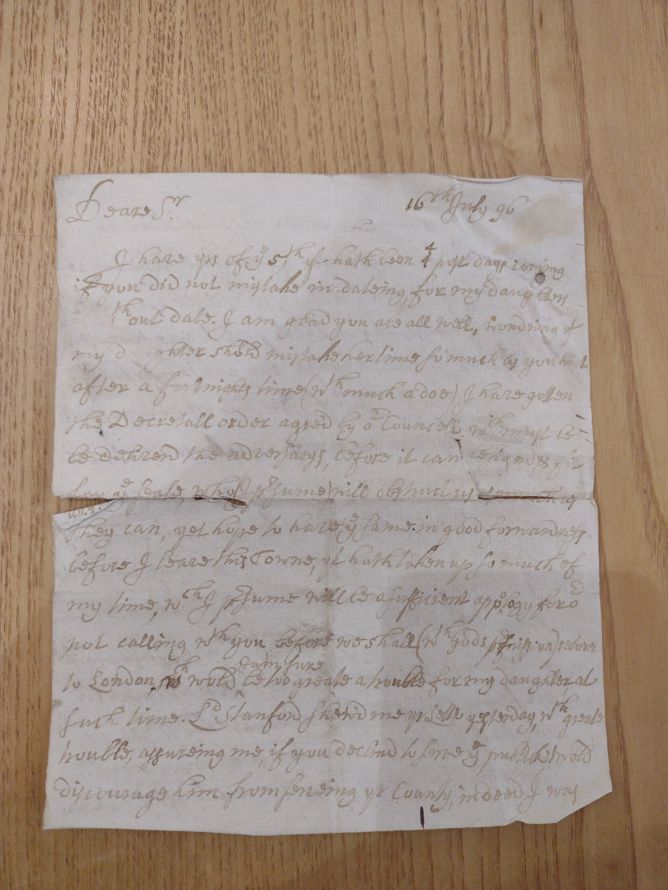 Deare Sr. 16th July 96
I have yrs of ye 5th yt hath been 4 post days coming
if you did not mistake in dateing, for my daughters
th out date. I am glad you are all well, wondring yt
my d hter shold mistake her time so much as you
after a fortnights time (wth much adoe) I have gotten
the Decretall order agred by or Councell, wch must be
be deliverd the adversarys, before it can &
ye seale, who Is prsume) will obstruct us as much as
they can, yet hope to have ye same in good forwardness
before I leave this Towne, yt hath taken up so much of
my time, wch I prsume will be a sufficient appology for or
not calling wth you before we shall (wth gods prmission) return
to London, wch wold be too greate a trouble for my daughter at
I am sure
such time. Ld Stanford shew'd me yrselfe yesterday, wth greate
trouble, assureing me, if you declind to serve ye publick it wold
discourage him from serving yr County, indeed I was